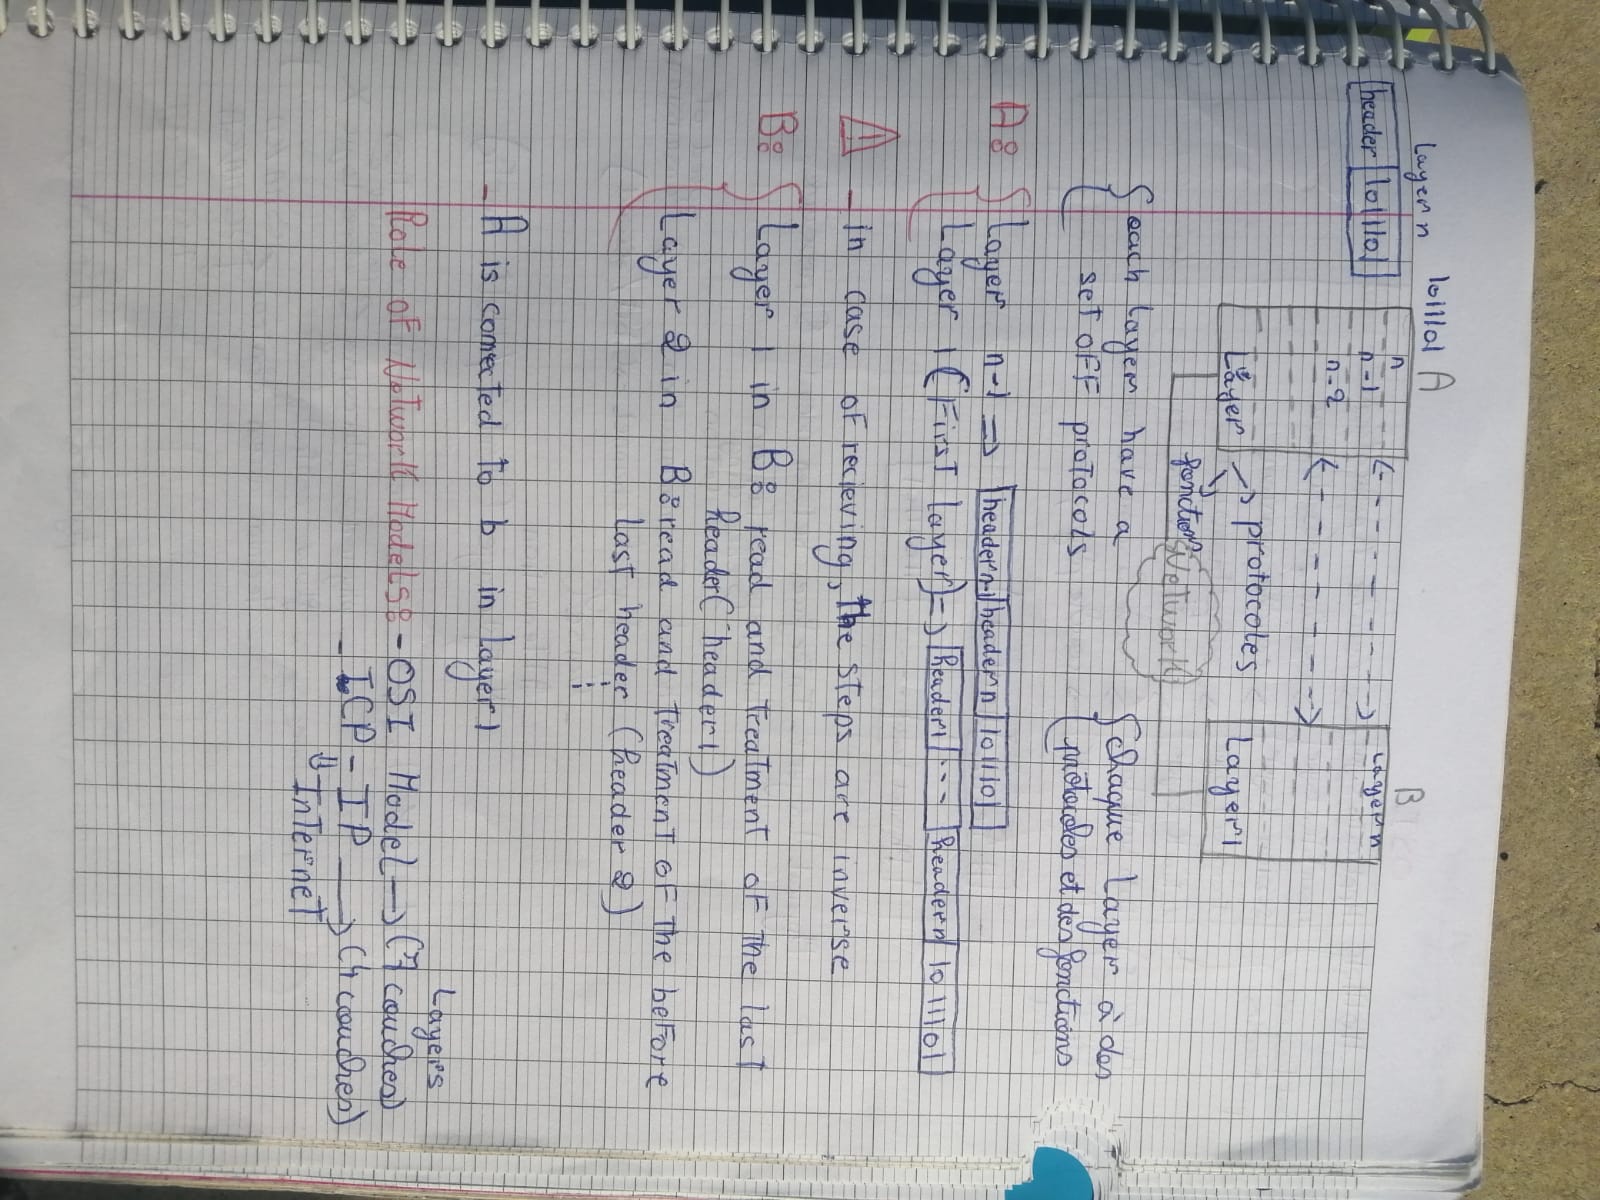 Layer n 1011101 A
B
header 101110
n
n-1
n-2
Layer n
protocoles
Layer
Layer 1
fonctions
Network
each layer have a
set off protocols
Chaque Layer à des
protocoles et des fonctions
A: Layer n-1 => header n-1 header n 1011101
Layer 1 (First layer) => header 1 ... header n 1011101
! - in case of recieving, the steps are inverse
B: Layer 1 in B: read and treatment of the last
header (header 1)
Layer 2 in B: read and treatment of the before
last header (header 2)
- A is connected to b in layer 1
Layers
Role of Network Models: - OSI Model → (7 couches)
- ICP - IP → (4 couches)
⇓ Internet